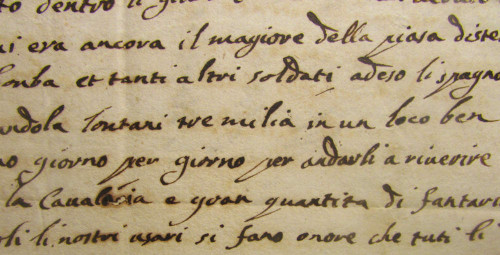 to dentro li
ui era ancora il magiore della piasa diste
onba et tanti altri soldati adeso li spagno
andola lontani tre milia in un loco ben
no giorno per giorno per andarli a riuerire
la Caualaria e gran quantita di fantari
rli li nostri usari si fano onore che tuti li